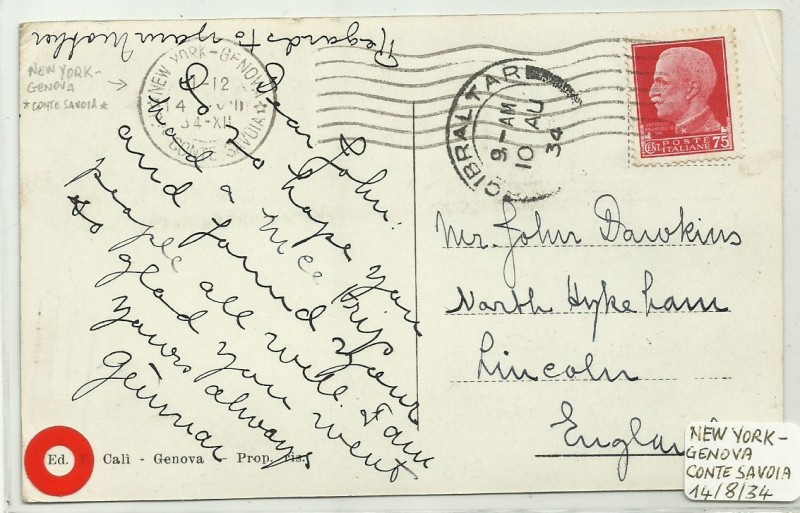 Regards to your Mother
NEW YORK-
GENOVA
*CONTE SAVOIA*
NEW YORK-GENOVA
-12
14
34-XII
CONTE SAVOIA
GIBRALTAR
9-AM
10 AU
34
POSTE
ITALIANE
CENT 75
Dear John.
Do so hope you
had a nice trip
and found your
people all well. I am
so glad you went
Yours always
Gunnar
Mr. John Dawkins
North Hykeham
Lincoln
England
Ed. E. Calì - Genova - Prop. ris.
NEW YORK-
GENOVA
CONTE SAVOIA
14/8/34